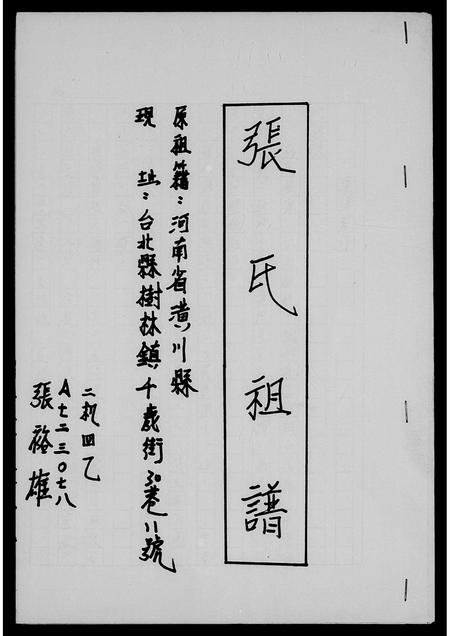 張氏祖譜
原祖籍：河南省潢川縣
現址：台北縣樹林鎮千歲街30巷11號
二机四乙
A七二三〇七八
張裕雄